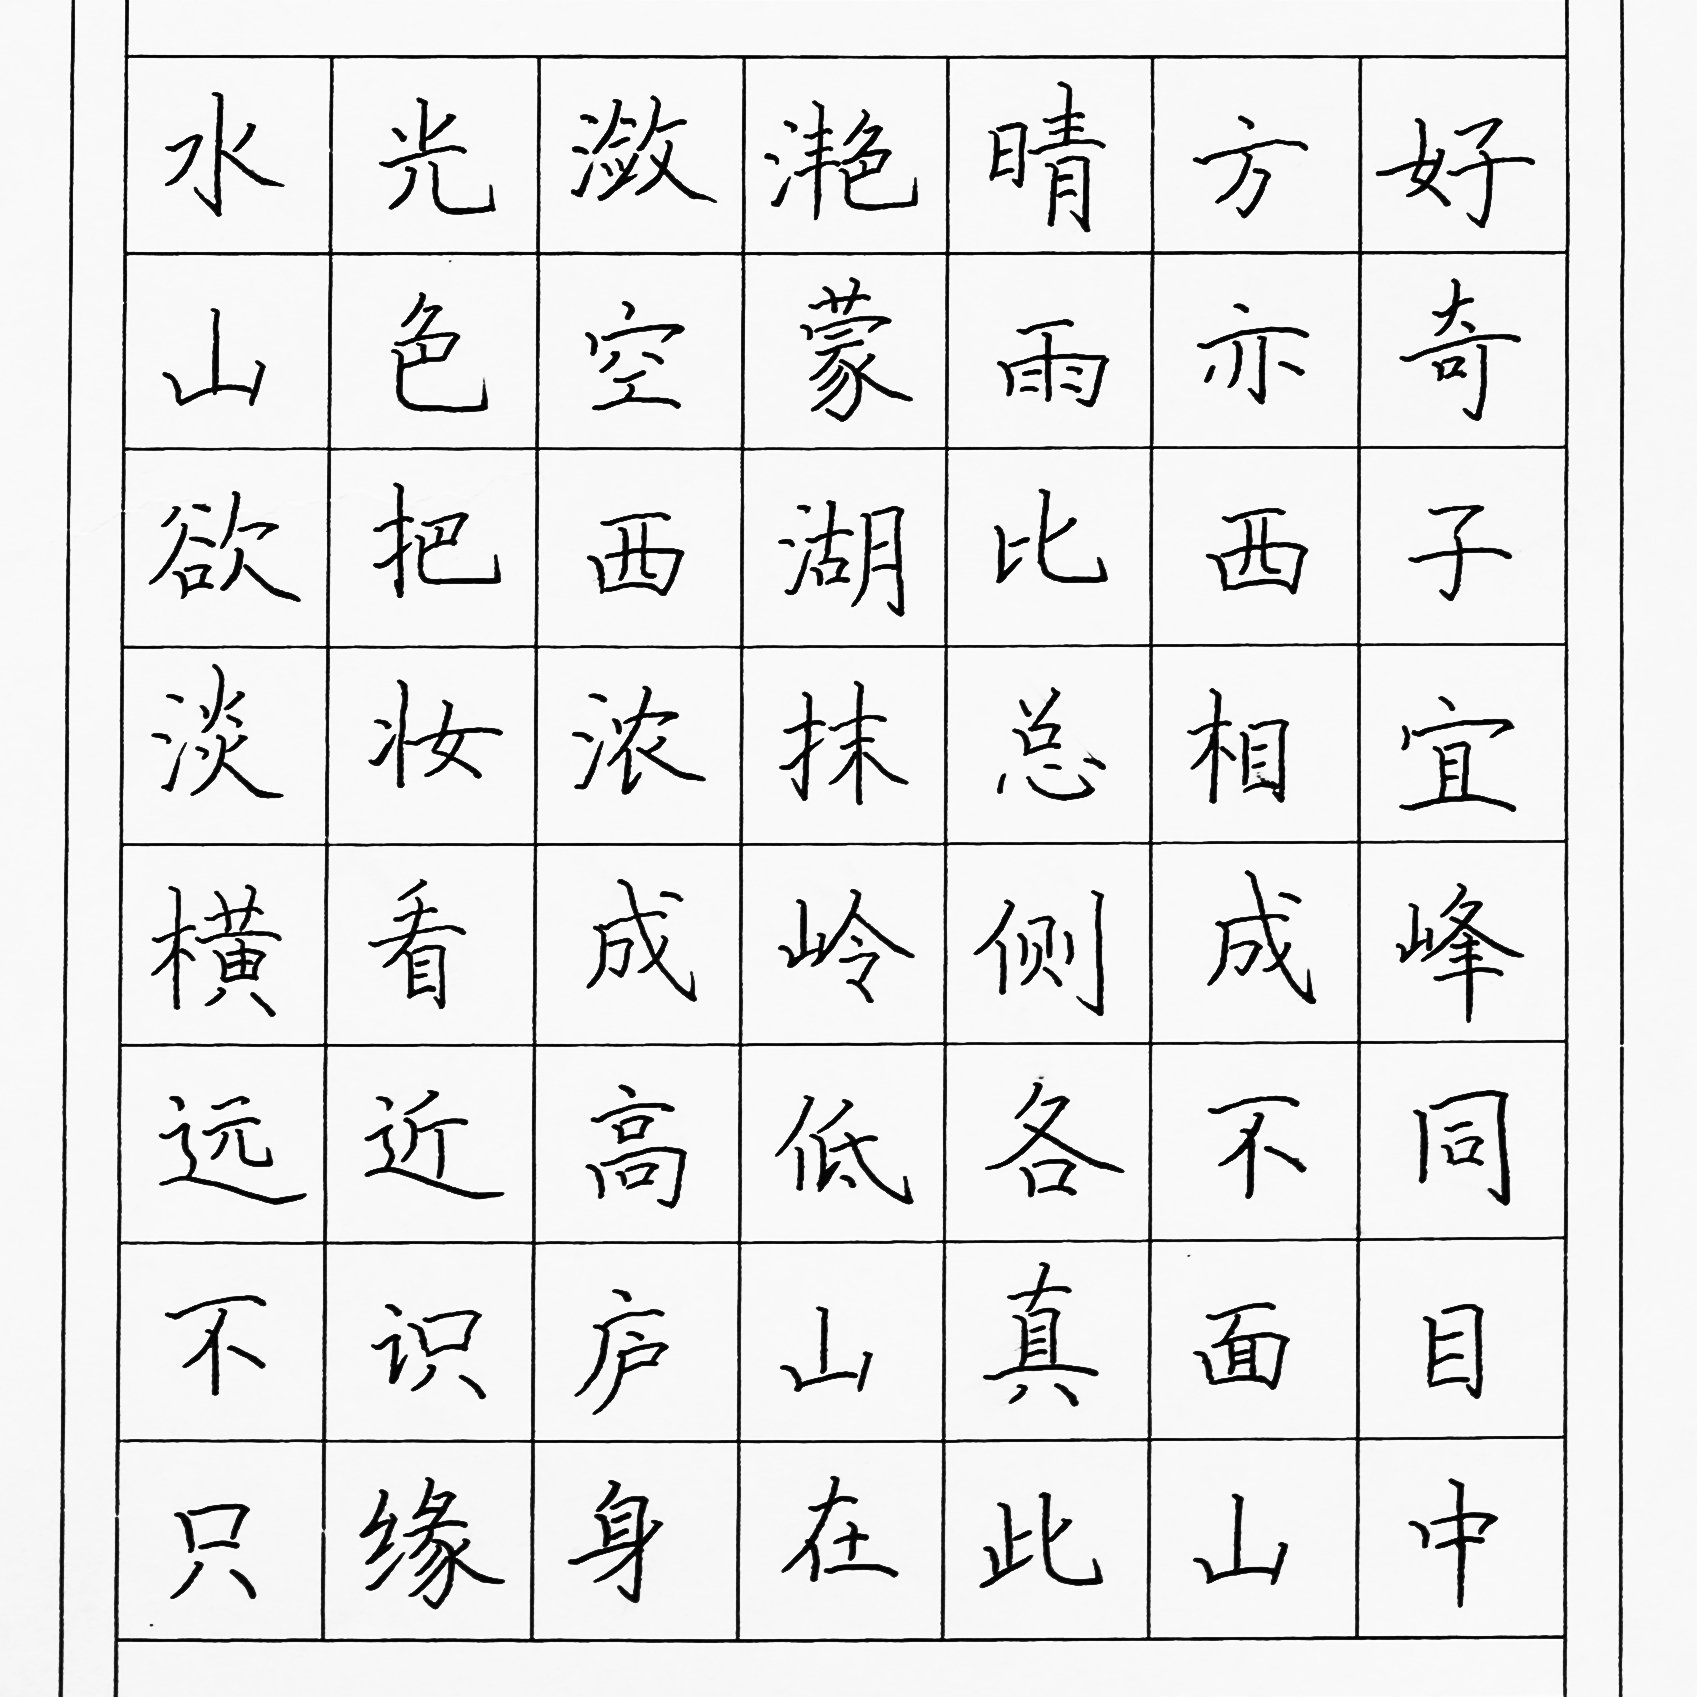 水光潋滟晴方好
山色空蒙雨亦奇
欲把西湖比西子
淡妆浓抹总相宜
横看成岭侧成峰
远近高低各不同
不识庐山真面目
只缘身在此山中